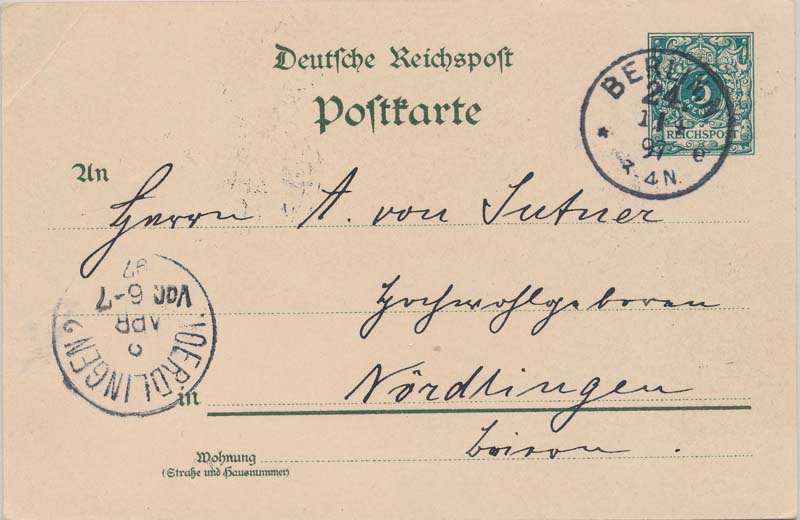 Deutsche Reichspost
Postkarte
5
REICHSPOST
BERLIN
24
11
97
3-4N.
An
Herrn A. von Sutner
Hochwohlgeboren
in Nördlingen
Wohnung
(Straße und Hausnummer)
NOERDLINGEN
APR
Vor 6-7
97